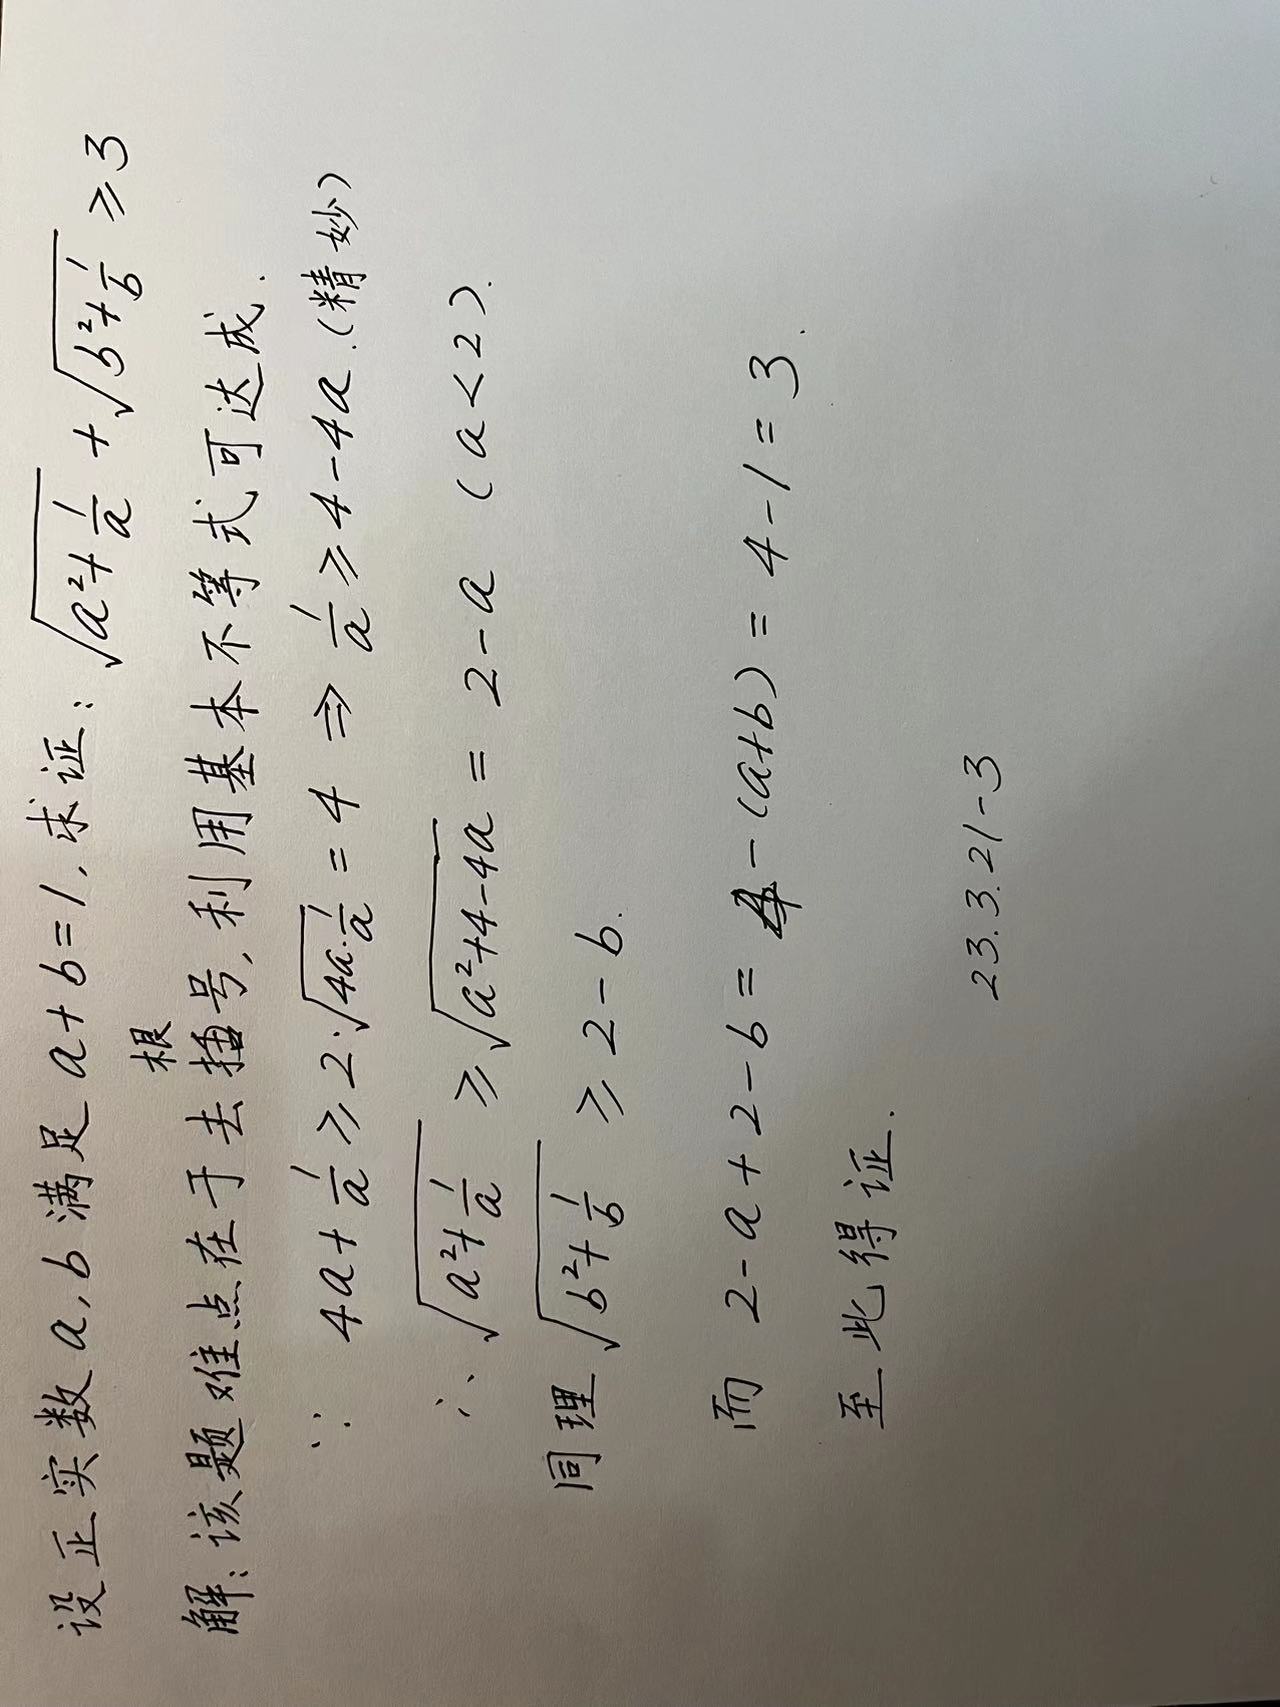 设正实数 a,b 满足 a+b=1,求证: √(a²+1/a) + √(b²+1/b) ≥ 3
根
解:该题难点在于去括号,利用基本不等式可达成.
∵ 4a+1/a ≥ 2·√(4a·1/a) = 4 ⇒ 1/a ≥ 4-4a.(精妙)
∴ √(a²+1/a) ≥ √(a²+4-4a) = 2-a (a<2).
同理 √(b²+1/b) ≥ 2-b.
而 2-a+2-b = 4-(a+b) = 4-1=3.
至此得证.
23.3.21-3